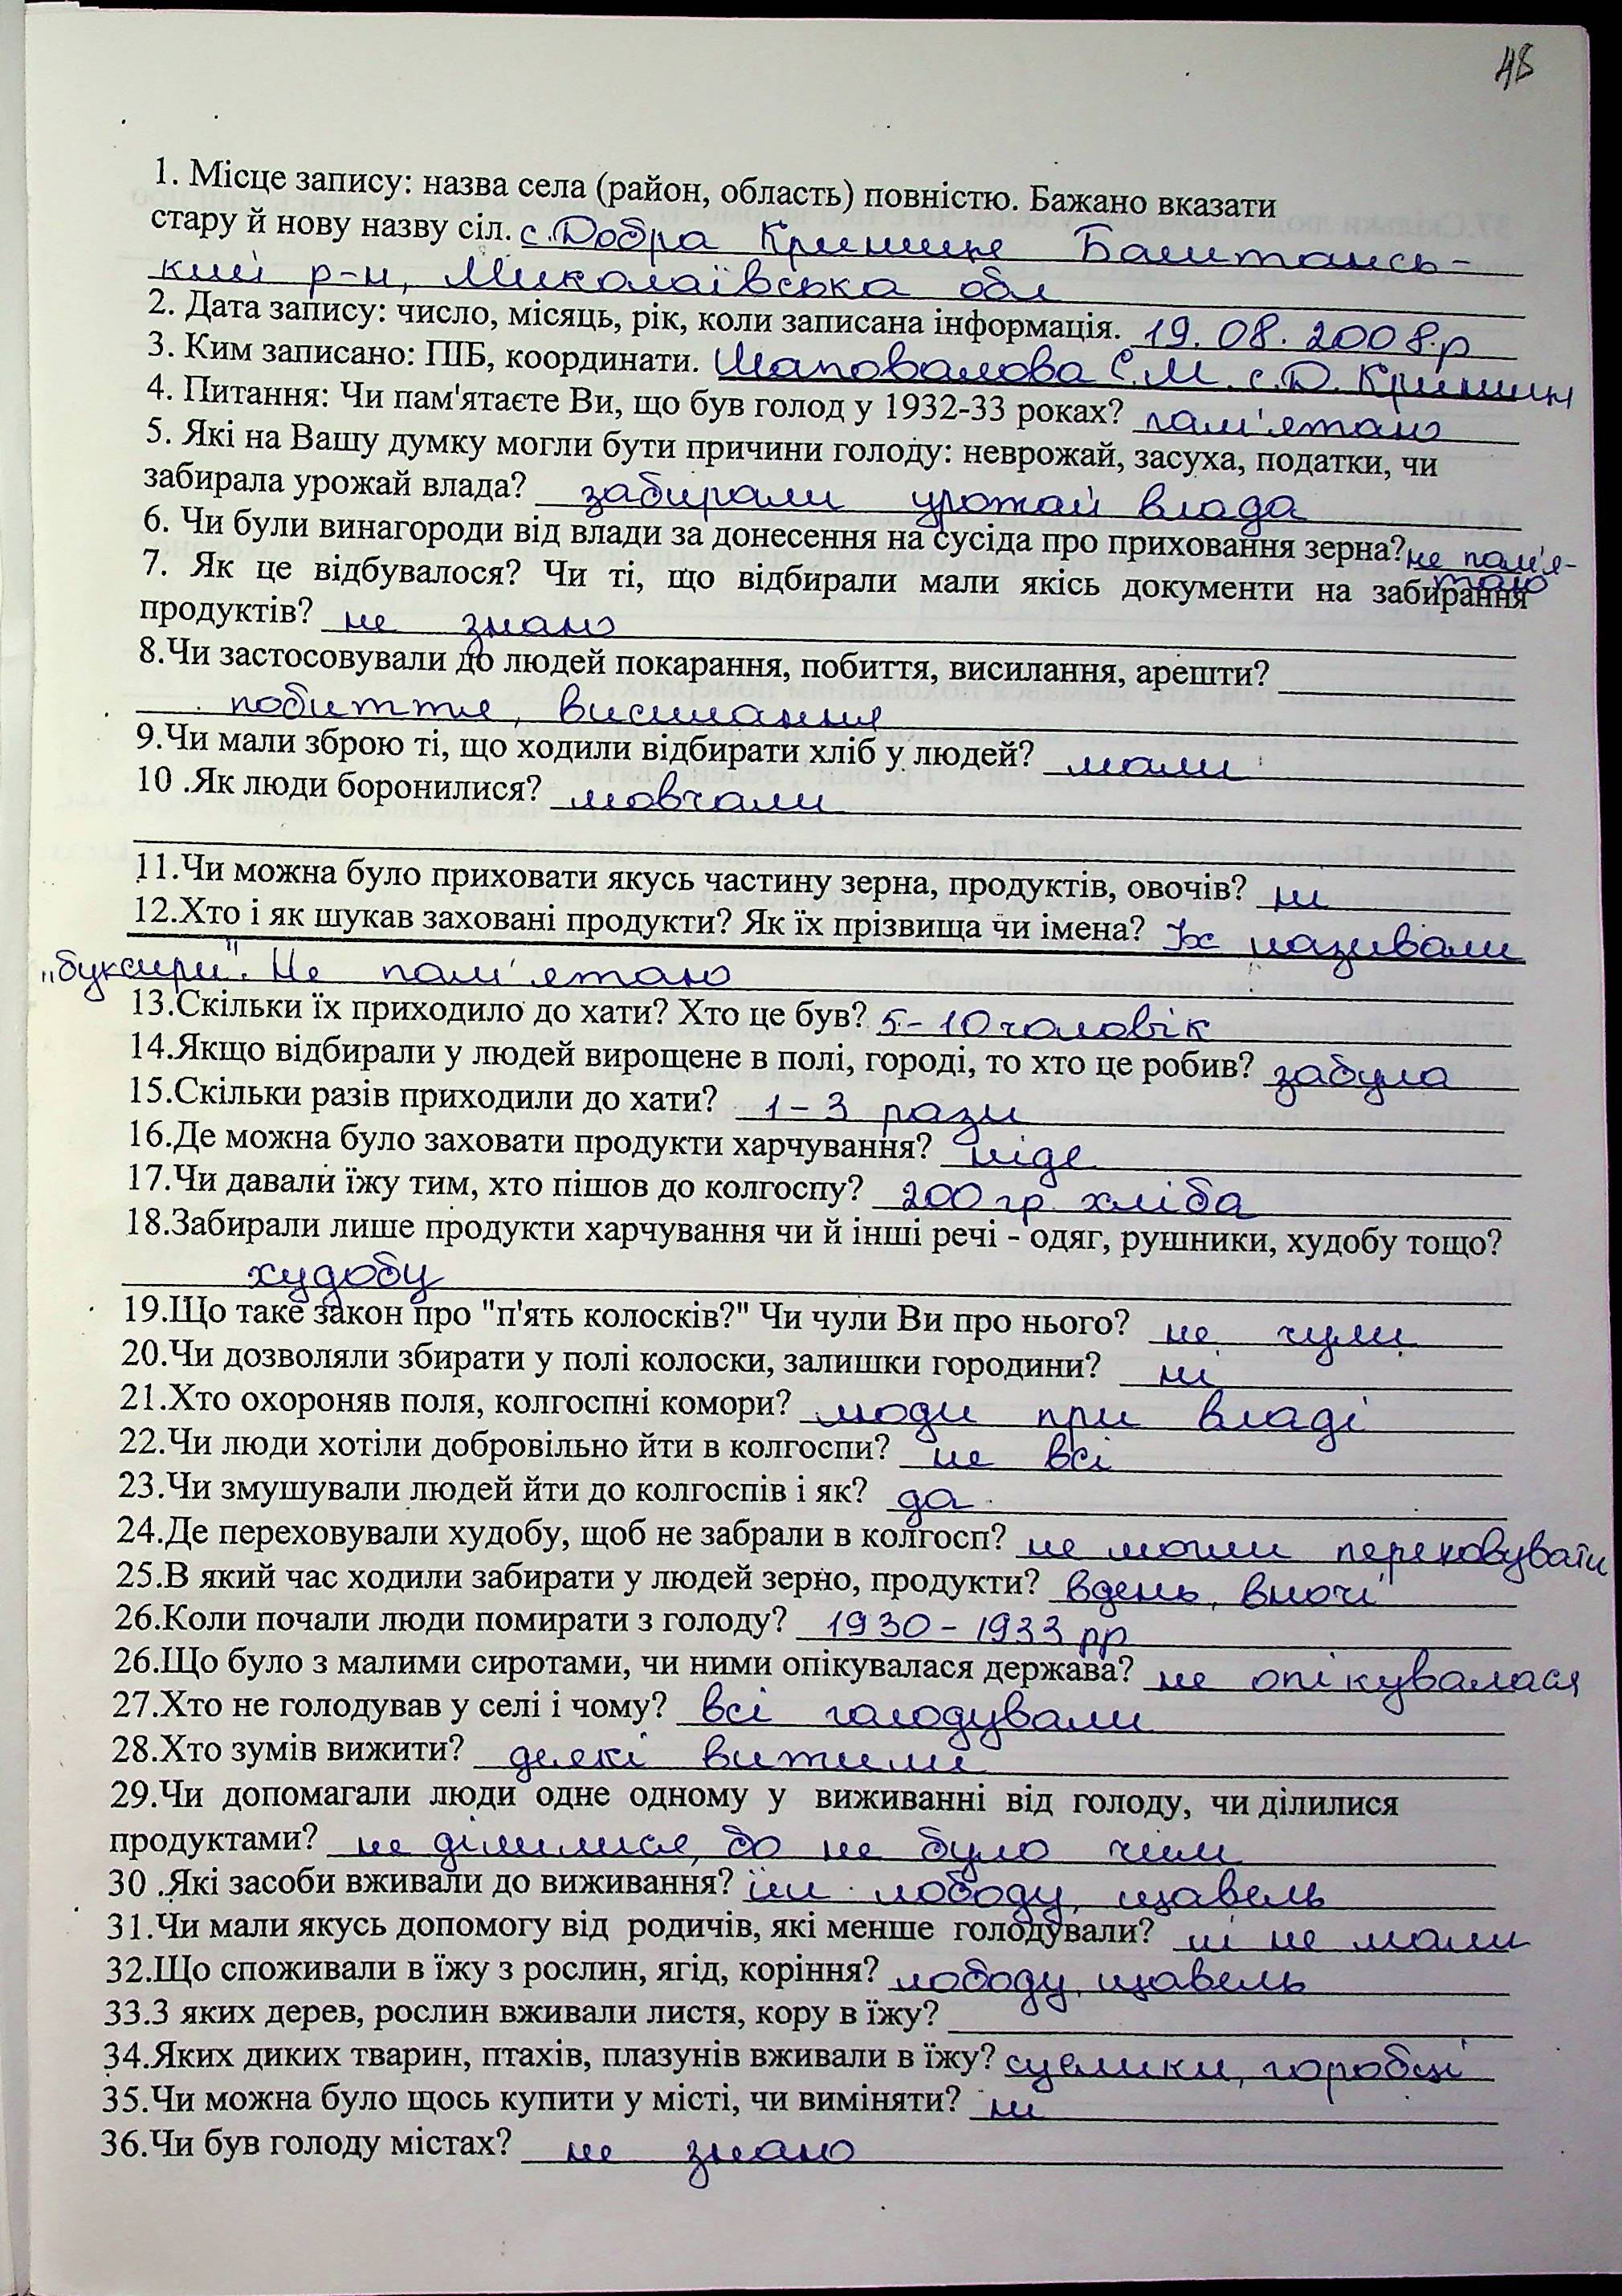 48
1. Місце запису: назва села (район, область) повністю. Бажано вказати
стару й нову назву сіл. с. Добра Криниця Баштансь-
кий р-н, Миколаївська обл
2. Дата запису: число, місяць, рік, коли записана інформація. 19.08.2008.р
3. Ким записано: ПІБ, координати. Шаповалова С.М. с.Д.Криниц
4. Питання: Чи пам'ятаєте Ви, що був голод у 1932-33 роках? пам'ятаю
5. Які на Вашу думку могли бути причини голоду: неврожай, засуха, податки, чи
забирала урожай влада? забирали урожай влада
6. Чи були винагороди від влади за донесення на сусіда про приховання зерна? не пам'я-
таю
7. Як це відбувалося? Чи ті, що відбирали мали якісь документи на забирання
продуктів? не знаю
8.Чи застосовували до людей покарання, побиття, висилання, арешти?
побиття, висилання
9.Чи мали зброю ті, що ходили відбирати хліб у людей? мали
10 .Як люди боронилися? мовчали
11.Чи можна було приховати якусь частину зерна, продуктів, овочів? ні
12.Хто і як шукав заховані продукти? Як їх прізвища чи імена? Їх називали
„буксири". Не пам'ятаю
13.Скільки їх приходило до хати? Хто це був? 5-10 чоловік
14.Якщо відбирали у людей вирощене в полі, городі, то хто це робив? забула
15.Скільки разів приходили до хати? 1-3 рази
16.Де можна було заховати продукти харчування? ніде
17.Чи давали їжу тим, хто пішов до колгоспу? 200 гр. хліба
18.Забирали лише продукти харчування чи й інші речі - одяг, рушники, худобу тощо?
худобу
19.Що таке закон про "п'ять колосків?" Чи чули Ви про нього? не чули
20.Чи дозволяли збирати у полі колоски, залишки городини? ні
21.Хто охороняв поля, колгоспні комори? люди при владі
22.Чи люди хотіли добровільно йти в колгоспи? не всі
23.Чи змушували людей йти до колгоспів і як? да
24.Де переховували худобу, щоб не забрали в колгосп? не могли переховувати
25.В який час ходили забирати у людей зерно, продукти? вдень, вночі
26.Коли почали люди помирати з голоду? 1930-1933 рр
26.Що було з малими сиротами, чи ними опікувалася держава? не опікувалася
27.Хто не голодував у селі і чому? всі голодували
28.Хто зумів вижити? деякі вижили
29.Чи допомагали люди одне одному у виживанні від голоду, чи ділилися
продуктами? не ділилися, бо не було чим
30 .Які засоби вживали до виживання? їли лободу, щавель
31.Чи мали якусь допомогу від родичів, які менше голодували? ні не мали
32.Що споживали в їжу з рослин, ягід, коріння? лободу, щавель
33.З яких дерев, рослин вживали листя, кору в їжу?
34.Яких диких тварин, птахів, плазунів вживали в їжу? суслики, горобці
35.Чи можна було щось купити у місті, чи виміняти? ні
36.Чи був голоду містах? не знаю